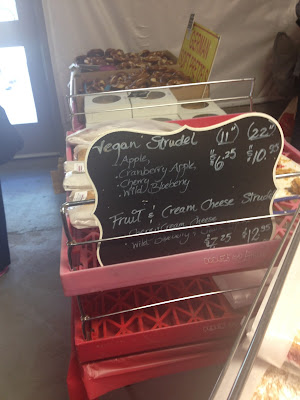 GERMAN
Vegan Strudel (11") (22")
Apple,
Cranberry Apple, $6.25 $10.95
Cherry
Wild Blueberry
Fruit & Cream Cheese Strudel
Cherry Cream Cheese
Wild Blueberry $7.25 $12.95